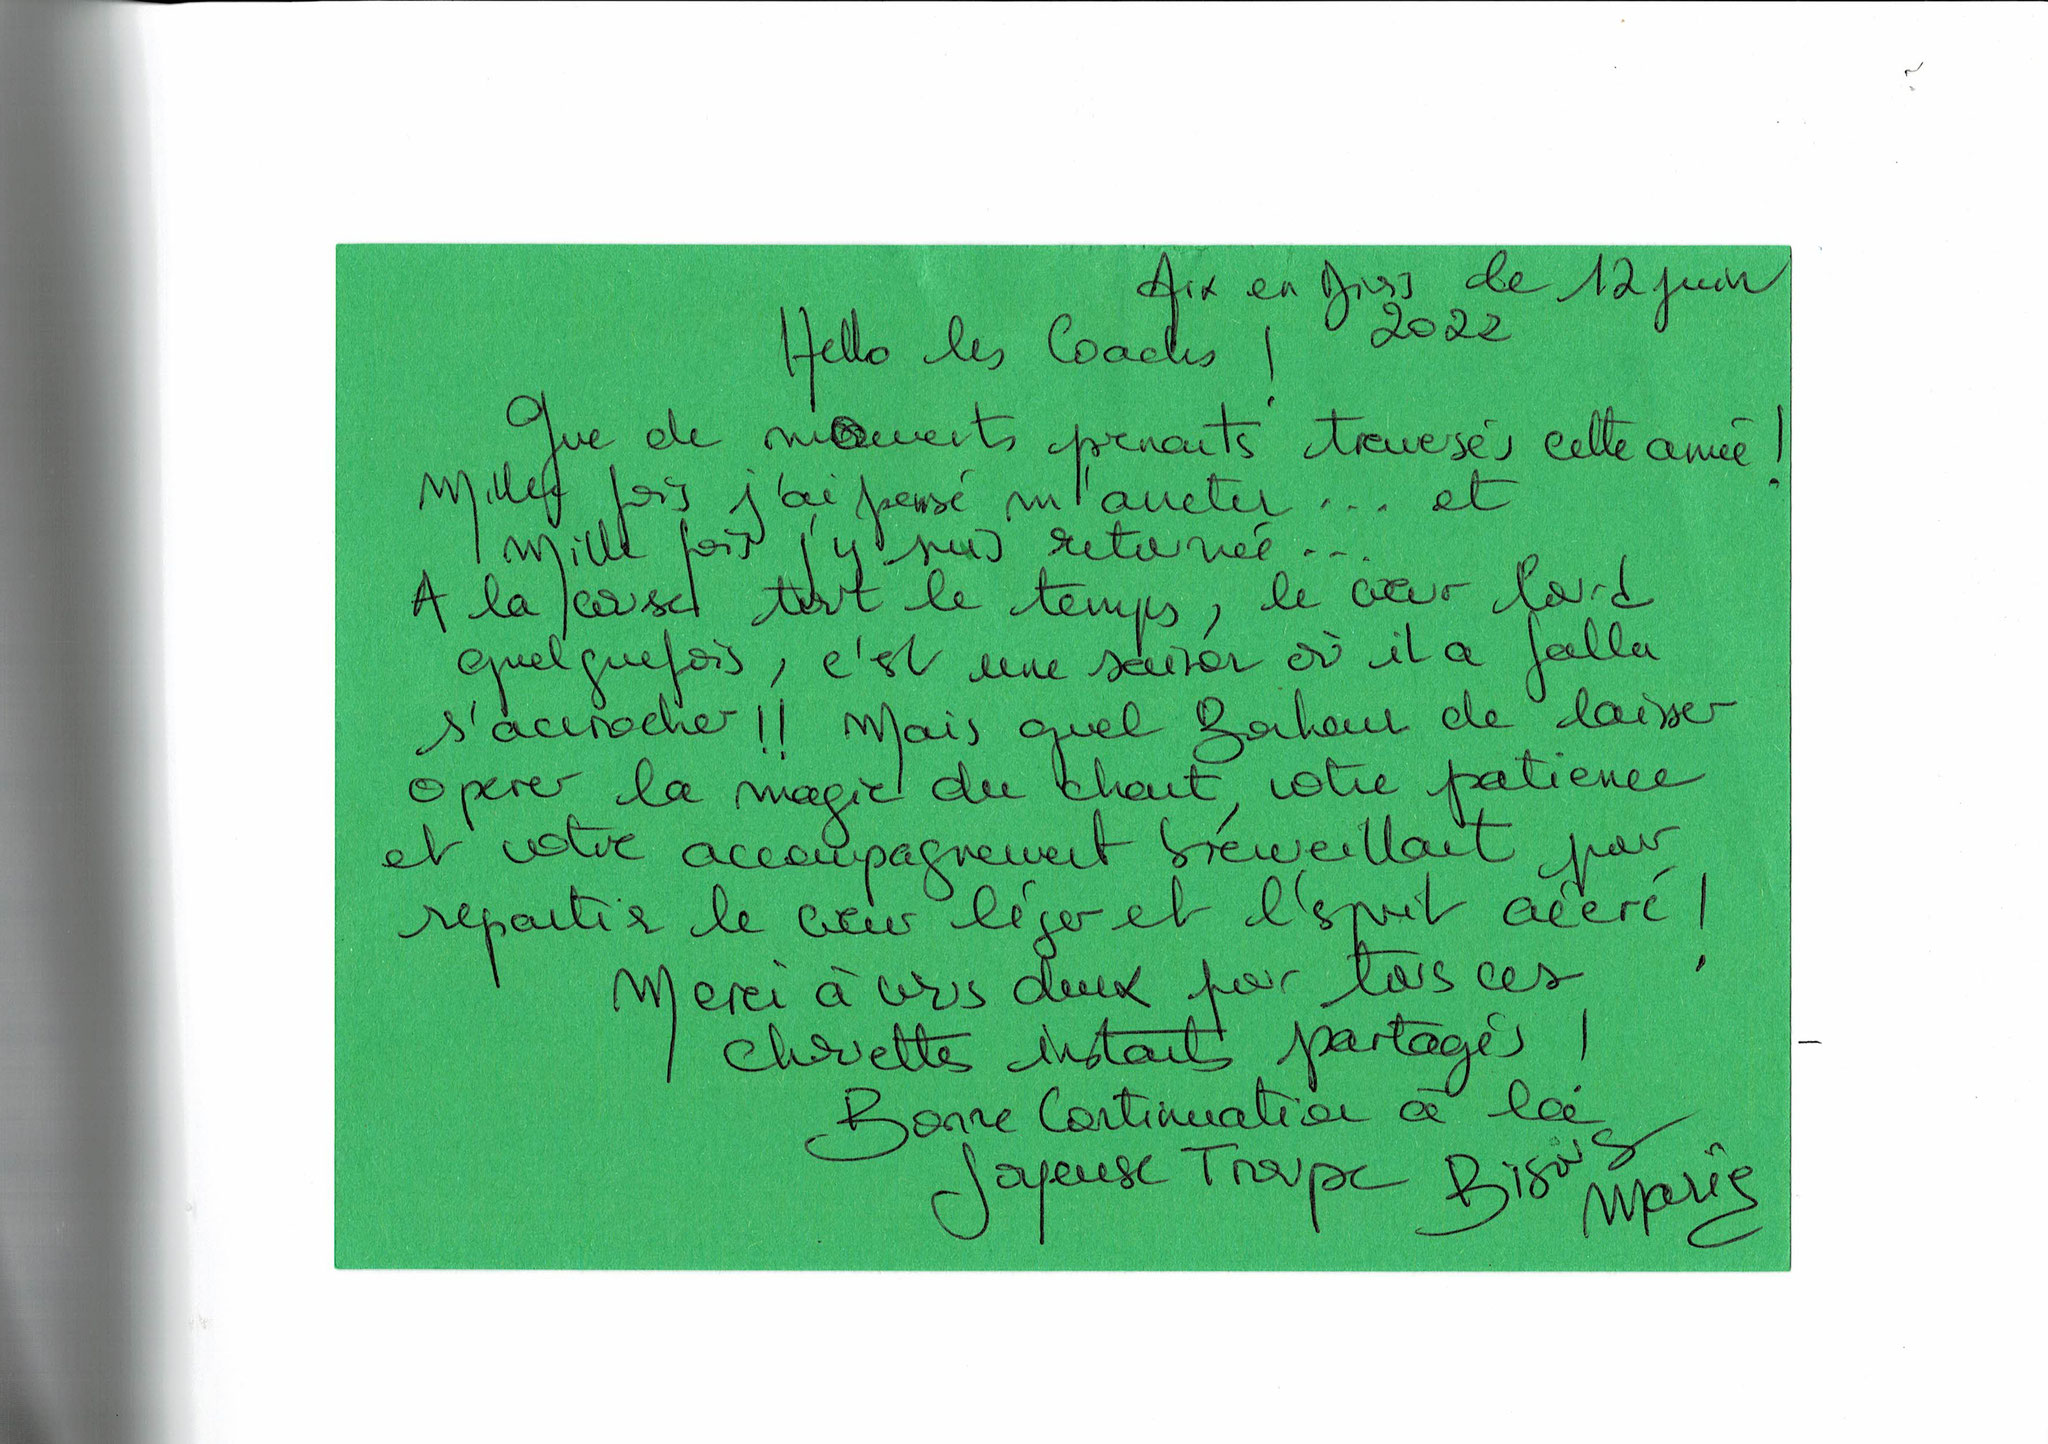 Aix en Diois le 12 juin
2022
Hello les Coachs !
Que de moments prenants traversés cette année !
Mille fois j'ai pensé m'arrêter ... et
mille fois j'y suis retournée ...
A la course tout le temps, le cœur lourd
quelquefois, c'est une saison où il a fallu
s'accrocher !! Mais quel Bonheur de laisser
opérer la magie du chant, votre patience
et votre accompagnement bienveillant pour
repartir le cœur léger et l'esprit aéré !
Merci à vous deux pour tous ces
chouettes instants partagés !
Bonne Continuation à la
Joyeuse Troupe Bisous